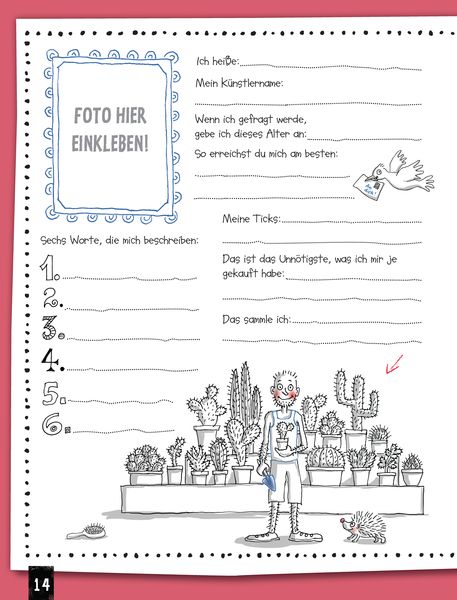 FOTO HIER
EINKLEBEN!
Ich heiße:
Mein Künstlername:
Wenn ich gefragt werde,
gebe ich dieses Alter an:
So erreichst du mich am besten:
Meine Ticks:
Sechs Worte, die mich beschreiben:
1.
2.
3.
4.
5.
6.
Das ist das Unnötigste, was ich mir je
gekauft habe:
Das sammle ich:
14